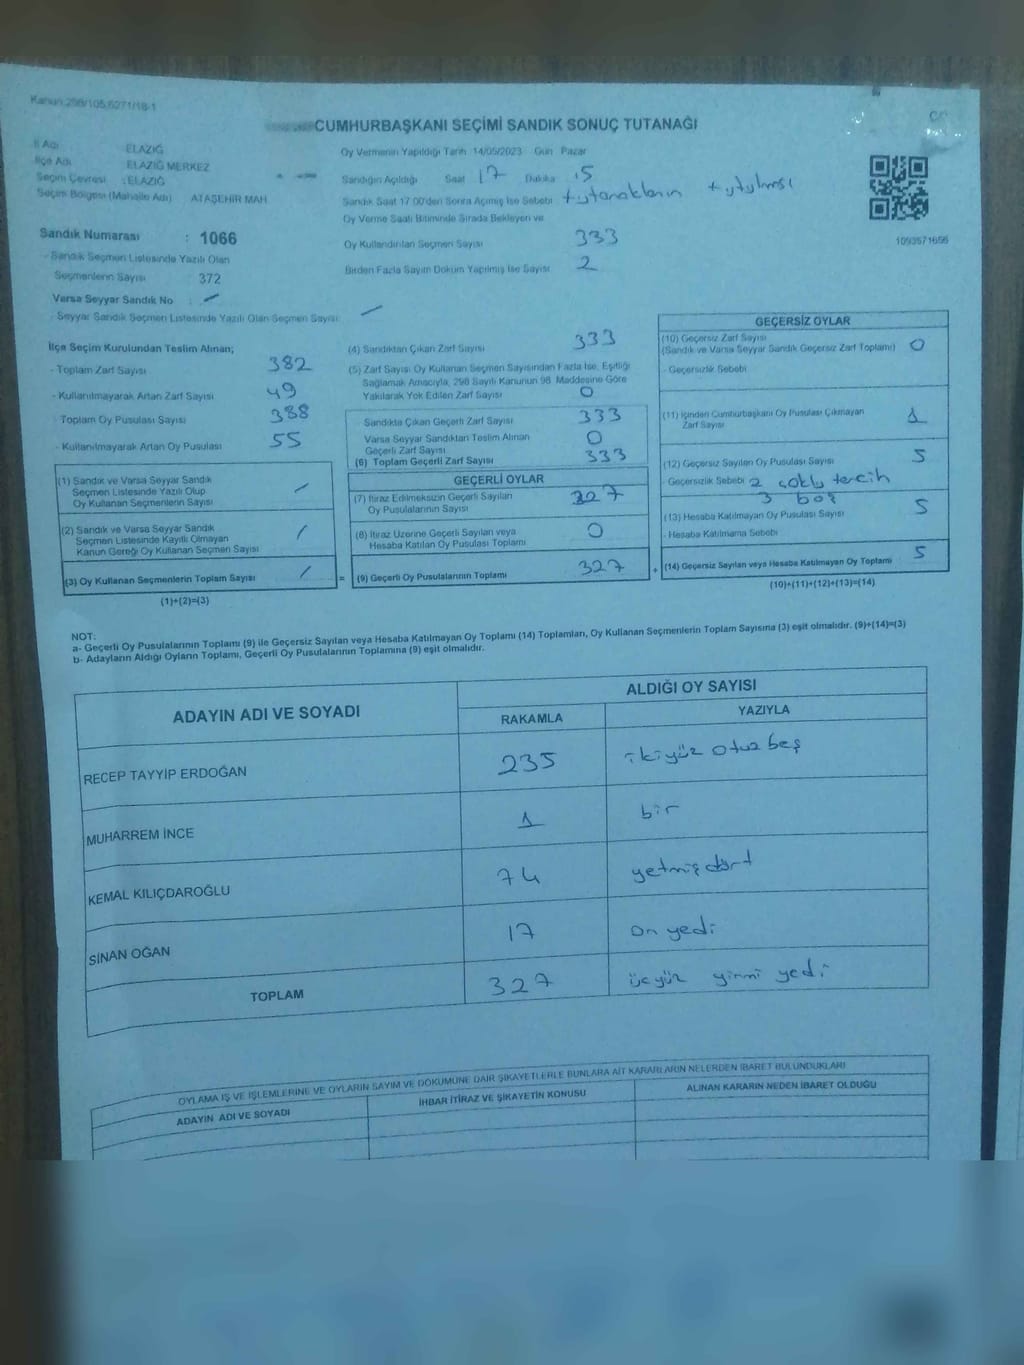 Kanun:298/105,6271/18-1
CUMHURBAŞKANI SEÇİMİ SANDIK SONUÇ TUTANAĞI
İl Adı ELAZIĞ
İlçe Adı ELAZIĞ MERKEZ
Seçim Çevresi :ELAZIĞ
Seçim Bölgesi (Mahalle Adı) ATAŞEHİR MAH
Sandık Numarası : 1066
- Sandık Seçmen Listesinde Yazılı Olan
Seçmenlerin Sayısı 372
Varsa Seyyar Sandık No : –
- Seyyar Sandık Seçmen Listesinde Yazılı Olan Seçmen Sayısı: –
Oy Vermenin Yapıldığı Tarih 14/05/2023 Gün Pazar
Sandığın Açıldığı Saat 17 Dakika 15
Sandık Saat 17.00'den Sonra Açılmış İse Sebebi tutanakların tutulması
Oy Verme Saati Bitiminde Sırada Bekleyen ve
Oy Kullandırılan Seçmen Sayısı 333
Birden Fazla Sayım Döküm Yapılmış İse Sayısı 2
İlçe Seçim Kurulundan Teslim Alınan;
- Toplam Zarf Sayısı 382
- Kullanılmayarak Artan Zarf Sayısı 49
- Toplam Oy Pusulası Sayısı 388
- Kullanılmayarak Artan Oy Pusulası 55
(1) Sandık ve Varsa Seyyar Sandık
Seçmen Listesinde Yazılı Olup
Oy Kullanan Seçmenlerin Sayısı /
(2) Sandık ve Varsa Seyyar Sandık
Seçmen Listesinde Kayıtlı Olmayan
Kanun Gereği Oy Kullanan Seçmen Sayısı /
(3) Oy Kullanan Seçmenlerin Toplam Sayısı /
(1)+(2)=(3)
(4) Sandıktan Çıkan Zarf Sayısı 333
(5) Zarf Sayısı Oy Kullanan Seçmen Sayısından Fazla İse, Eşitliği
Sağlamak Amacıyla, 298 Sayılı Kanunun 98. Maddesine Göre
Yakılarak Yok Edilen Zarf Sayısı 0
Sandıkta Çıkan Geçerli Zarf Sayısı 333
Varsa Seyyar Sandıktan Teslim Alınan
Geçerli Zarf Sayısı 0
(6) Toplam Geçerli Zarf Sayısı 333
GEÇERLİ OYLAR
(7) İtiraz Edilmeksizin Geçerli Sayılan
Oy Pusulalarının Sayısı 327
(8) İtiraz Üzerine Geçerli Sayılan veya
Hesaba Katılan Oy Pusulası Toplamı 0
= (9) Geçerli Oy Pusulalarının Toplamı 327 +
GEÇERSİZ OYLAR
(10) Geçersiz Zarf Sayısı
(Sandık ve Varsa Seyyar Sandık Geçersiz Zarf Toplamı) 0
- Geçersizlik Sebebi
(11) İçinden Cumhurbaşkanı Oy Pusulası Çıkmayan
Zarf Sayısı 1
(12) Geçersiz Sayılan Oy Pusulası Sayısı 5
- Geçersizlik Sebebi 2 çoklu tercih
3 boş
(13) Hesaba Katılmayan Oy Pusulası Sayısı 5
- Hesaba Katılmama Sebebi
(14) Geçersiz Sayılan veya Hesaba Katılmayan Oy Toplamı 5
(10)+(11)+(12)+(13)=(14)
1093571656
NOT:
a- Geçerli Oy Pusulalarının Toplamı (9) ile Geçersiz Sayılan veya Hesaba Katılmayan Oy Toplamı (14) Toplamları, Oy Kullanan Seçmenlerin Toplam Sayısına (3) eşit olmalıdır. (9)+(14)=(3)
b- Adayların Aldığı Oyların Toplamı, Geçerli Oy Pusulalarının Toplamına (9) eşit olmalıdır.
ADAYIN ADI VE SOYADI
ALDIĞI OY SAYISI
RAKAMLA YAZIYLA
RECEP TAYYİP ERDOĞAN 235 ikiyüz otuz beş
MUHARREM İNCE 1 bir
KEMAL KILIÇDAROĞLU 74 yetmiş dört
SİNAN OĞAN 17 on yedi
TOPLAM 327 üçyüz yirmi yedi
OYLAMA İŞ VE İŞLEMLERİNE VE OYLARIN SAYIM VE DÖKÜMÜNE DAİR ŞİKAYETLERLE BUNLARA AİT KARARLARIN NELERDEN İBARET BULUNDUKLARI
ADAYIN ADI VE SOYADI İHBAR İTİRAZ VE ŞİKAYETİN KONUSU ALINAN KARARIN NEDEN İBARET OLDUĞU